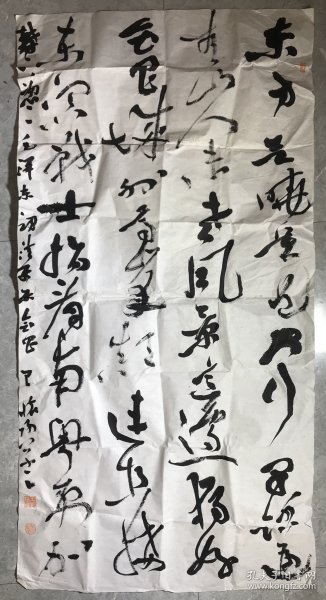 东方欲晓莫道君行早踏遍
青山人未老风景这边独好
会昌城外高峰颠连直接
东溟战士指看南粤更加
郁郁葱葱 毛泽东词清平乐会昌
孔夫子旧书网